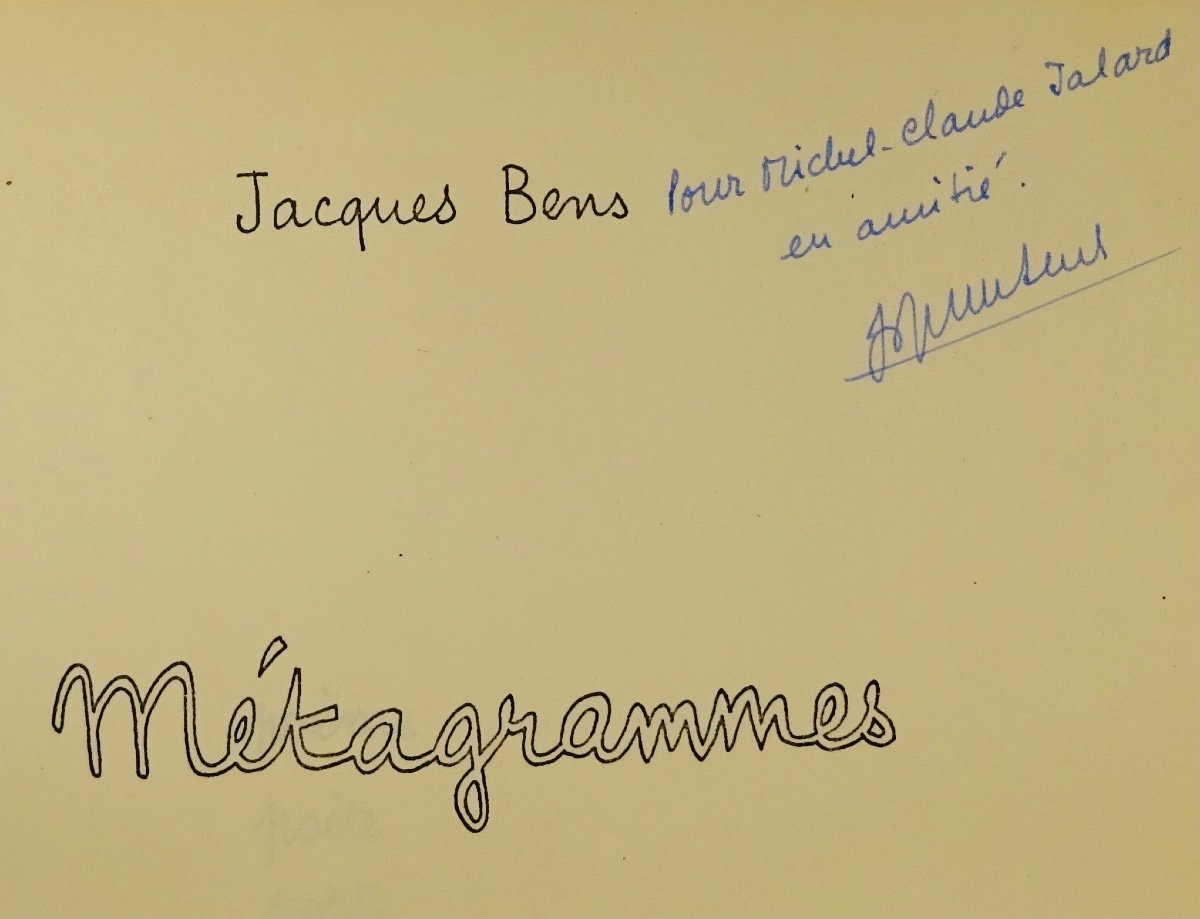 Jacques Bens
Pour Michel-Claude Jalard
en amitié.
Métagrammes